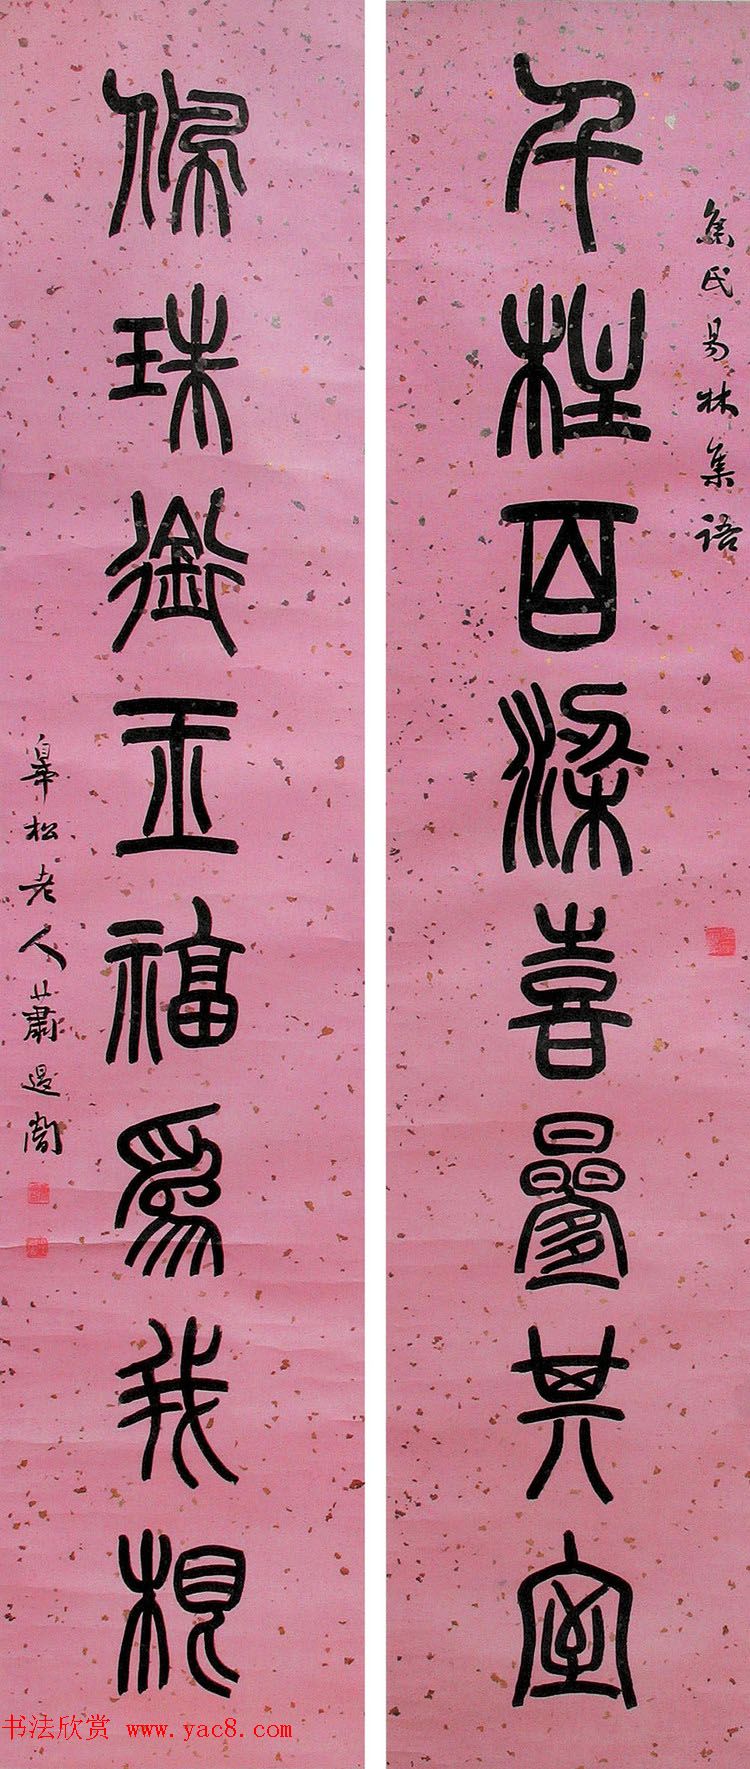 焦氏易林集語
千柱百梁喜疊其室
保珠銜玉福為我根
皋松老人蕭退闇
书法欣赏 www.yac8.com